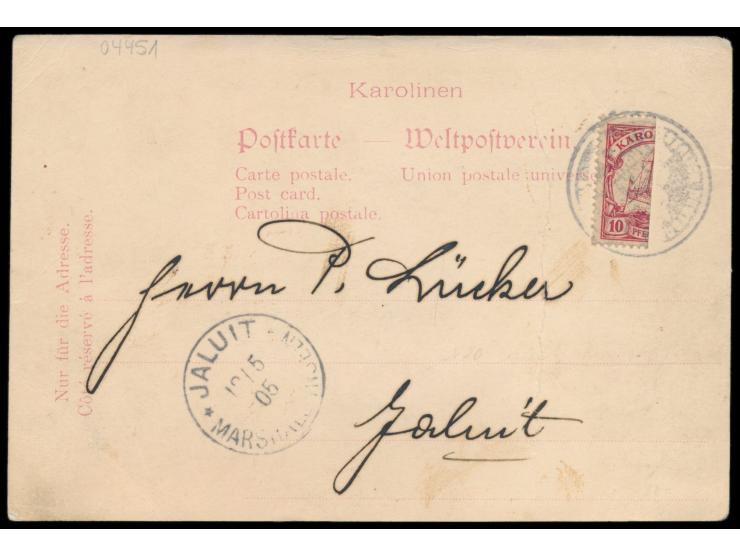 04451
Karolinen
Postkarte Weltpostverein
Carte postale. Union postale universe
Post card.
Cartolina postale.
KARO
10
PFE
Nur für die Adresse.
Côté réservé à l'adresse.
Herrn P. Lücker
JALUIT
5
05
Jaluit